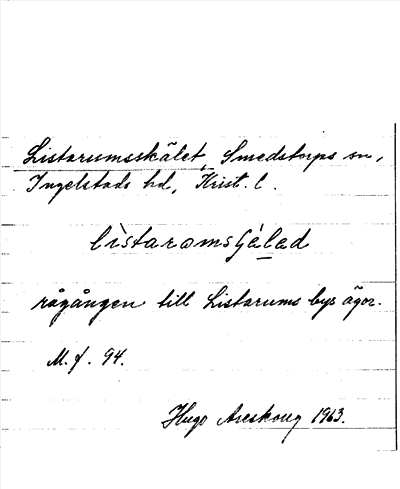 Listarumsskälet, Smedstorps sn,
Ingelstads hd, Krist. l.
lìstaromsʃèled
rågången till Listarums bys ägor.
M. f. 94.
Hugo Areskoug 1963.